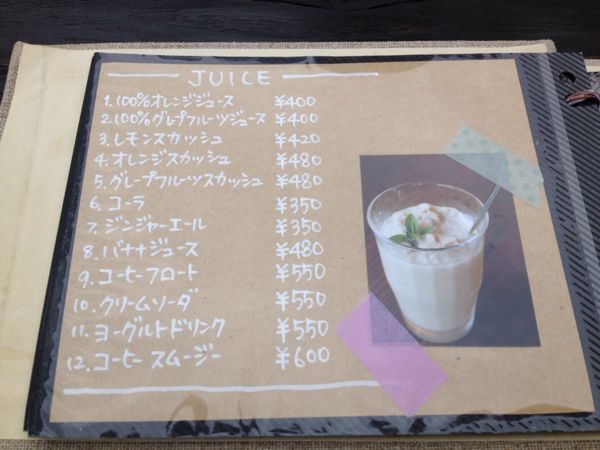 JUICE
1. 100%オレンジジュース ¥400
2. 100%グレプフルーツジュース ¥400
3. レモンスカッシュ ¥420
4. オレンジスカッシュ ¥480
5. グレープフルーツスカッシュ ¥480
6. コーラ ¥350
7. ジンジャーエール ¥350
8. バナナジュース ¥480
9. コーヒーフロート ¥550
10. クリームソーダ ¥550
11. ヨーグルトドリンク ¥550
12. コーヒースムージー ¥600